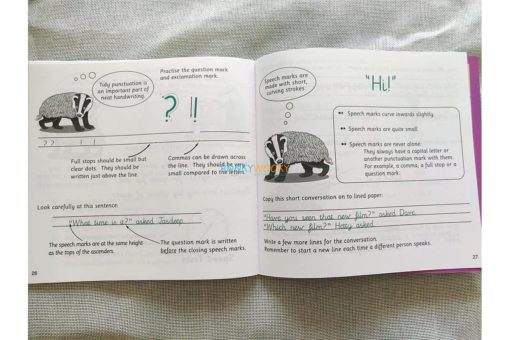 Tidy punctuation is
an important part of
neat handwriting.
Practise the question mark
and exclamation mark.
? !
? ? ! !
Full stops should be small but
clear dots. They should be
written just above the line.
Commas can be drawn across
the line. They should be very
small compared to the letters.
Look carefully at this sentence:
"What time is it?" asked Jaideep.
The speech marks are at the same height
as the tops of the ascenders.
The question mark is written
before the closing speech marks.
26
Speech marks are
made with short,
curving strokes.
"Hi!"
Speech marks curve inwards slightly.
Speech marks are quite small.
Speech marks are never alone.
They always have a capital letter or
another punctuation mark with them.
For example, a comma, a full stop or a
question mark.
Copy this short conversation on to lined paper:
"Have you seen that new film?" asked Dave.
"Which new film?" Hazy asked.
Write a few more lines for the conversation.
Remember to start a new line each time a different person speaks.
27